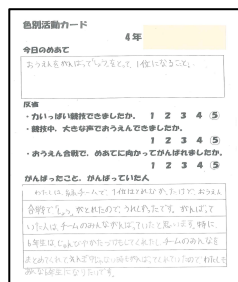 色別活動カード
4年
今日のめあて
おうえんをがんばって しょうをとって、1位になること。
反省
・力いっぱい競技できましたか。 1 2 3 4 ⑤
・競技中、大きな声でおうえんできましたか。
1 2 3 4 ⑤
・おうえん合戦で、めあてに向かってがんばれましたか。
1 2 3 4 ⑤
がんばったこと、がんばっていた人
わたしは、チームで、1位はとれなかったけど、おうえん
合戦でしょうがとれたので、うれしかったです。がんばって
いた人は、チームのみんながんばっていたと思います。特に、
6年生は
チームのみんなを
まとめてくれて
わたしも
6年生になりたいです。